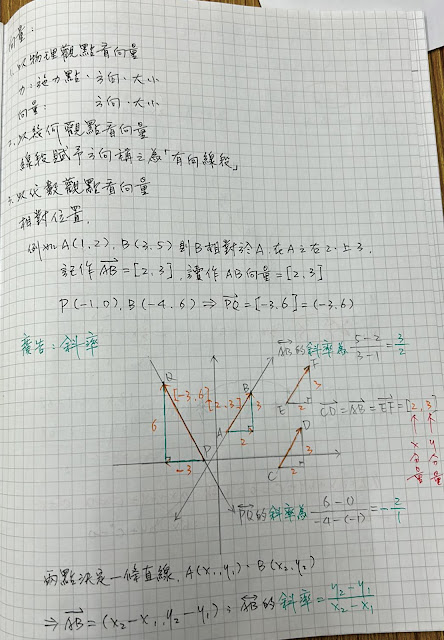 向量:
1. 以物理觀點看向量
力:施力點、方向、大小
向量: 方向、大小
2. 以幾何觀點看向量
線段賦予方向稱之為「有向線段」
3. 以代數觀點看向量
相對位置,
例如 A(1,2), B(3,5) 則B相對於A, 在A之右2, 上3,
記作 AB=[2,3], 讀作AB向量=[2,3]
P(-1,0), B(-4,6) ⇒ PQ=[-3,6]=(-3,6)
廣告:斜率
AB的斜率為 5-2/3-1 = 3/2
Q
[-3,6]
6
-3
P
[2,3]
A
B
2
3
E
F
2
3
CD=AB=EF=[2,3]
↑ ↑
x y
分 分
量 量
C
D
2
3
PQ的斜率為 6-0/-4-(-1) = -2/1
兩點決定一條直線, A(x₁,y₁)、B(x₂,y₂)
⇒ AB=(x₂-x₁, y₂-y₁); AB的斜率= y₂-y₁/x₂-x₁